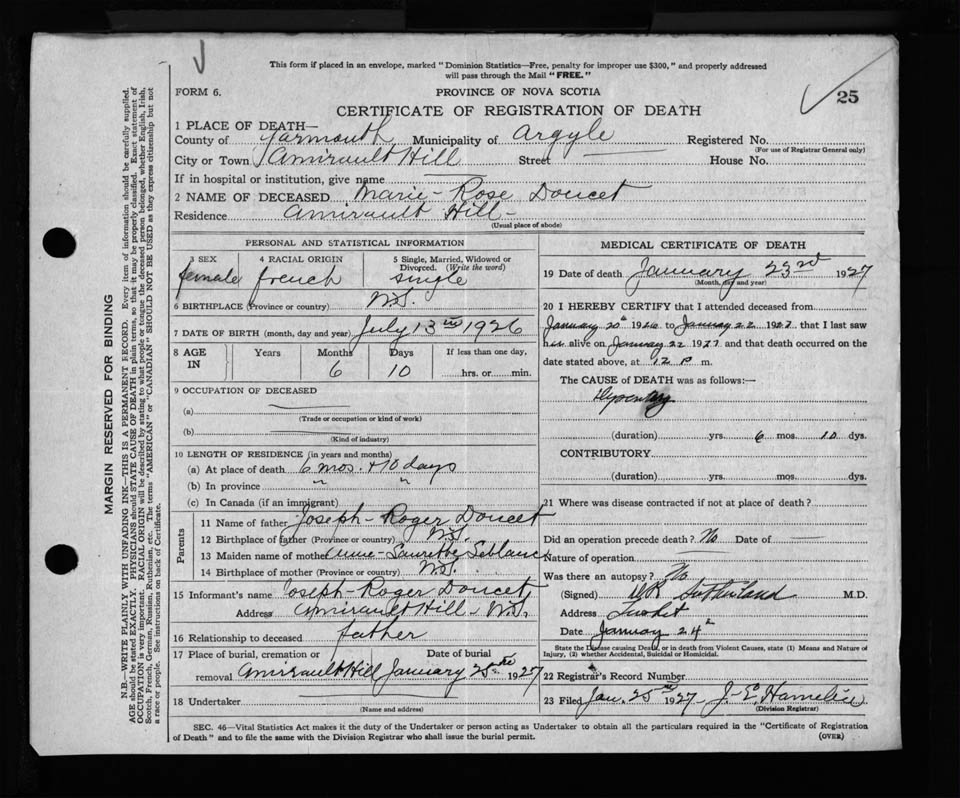 This form if placed in an envelope, marked "Dominion Statistics—Free, penalty for improper use $300," and properly addressed
will pass through the Mail "FREE."
FORM 6.
PROVINCE OF NOVA SCOTIA
25
CERTIFICATE OF REGISTRATION OF DEATH
1 PLACE OF DEATH—
County of Yarmouth Municipality of Argyle Registered No.
(For use of Registrar General only)
City or Town Amirault Hill Street House No.
If in hospital or institution, give name
2 NAME OF DECEASED Marie-Rose Doucet
Residence Amirault Hill-
(Usual place of abode)
PERSONAL AND STATISTICAL INFORMATION
3 SEX 4 RACIAL ORIGIN 5 Single, Married, Widowed or
Divorced. (Write the word)
female french single
6 BIRTHPLACE (Province or country) N.S.
7 DATE OF BIRTH (month, day and year) July 13th 1926
8 AGE IN Years Months Days If less than one day,
6 10 hrs. or min.
9 OCCUPATION OF DECEASED
(a)
(Trade or occupation or kind of work)
(b)
(Kind of industry)
10 LENGTH OF RESIDENCE (in years and months)
(a) At place of death 6 mos. + 10 days
(b) In province " "
(c) In Canada (if an immigrant)
Parents
11 Name of father Joseph-Roger Doucet
12 Birthplace of father (Province or country) N.S.
13 Maiden name of mother Anne- Leblanc
14 Birthplace of mother (Province or country) N.S.
15 Informant's name Joseph-Roger Doucet
Address Amirault Hill- N.S.
16 Relationship to deceased father
17 Place of burial, cremation or Date of burial
removal Amirault Hill January 25th 1927
18 Undertaker
(Name and address)
MEDICAL CERTIFICATE OF DEATH
19 Date of death January 23rd 1927
(Month, day and year)
20 I HEREBY CERTIFY that I attended deceased from
January 20th 1926 to January 22 1927 that I last saw
h alive on January 22 1927 and that death occurred on the
date stated above, at 12 p m.
The CAUSE of DEATH was as follows:—
Dysentery
(duration) yrs. 6 mos. 10 dys.
CONTRIBUTORY
(duration) yrs. mos. dys.
21 Where was disease contracted if not at place of death?
Did an operation precede death? No Date of
Nature of operation
Was there an autopsy? No
(Signed) Sutherland M.D.
Address Tusket
Date January 24
State the Disease causing Death, or in death from Violent Causes, state (1) Means and Nature of
Injury, (2) whether Accidental, Suicidal or Homicidal.
22 Registrar's Record Number
23 Filed Jan. 25th 1927 J-E.
(Division Registrar)
SEC. 46—Vital Statistics Act makes it the duty of the Undertaker or person acting as Undertaker to obtain all the particulars required in the "Certificate of Registration
of Death" and to file the same with the Division Registrar who shall issue the burial permit.
(OVER)
MARGIN RESERVED FOR BINDING
N.B.—WRITE PLAINLY WITH UNFADING INK—THIS IS A PERMANENT RECORD. Every item of information should be carefully supplied.
AGE should be stated EXACTLY. PHYSICIANS should STATE CAUSE OF DEATH in plain terms, so that it may be properly classified. Exact statement of
OCCUPATION is very important. RACIAL ORIGIN will be described by stating to what people or tongue the deceased person belonged, whether English, Irish,
Scotch, French, German, Russian, Ruthenian, etc. The terms "AMERICAN" or "CANADIAN" SHOULD NOT BE USED as they express citizenship but not
a race or people. See instructions on back of Certificate.